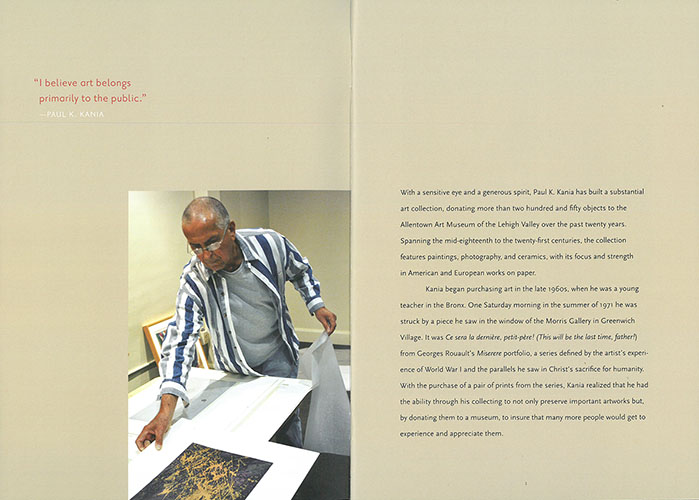 “I believe art belongs
primarily to the public.”
—PAUL K. KANIA
With a sensitive eye and a generous spirit, Paul K. Kania has built a substantial
art collection, donating more than two hundred and fifty objects to the
Allentown Art Museum of the Lehigh Valley over the past twenty years.
Spanning the mid-eighteenth to the twenty-first centuries, the collection
features paintings, photography, and ceramics, with its focus and strength
in American and European works on paper.
Kania began purchasing art in the late 1960s, when he was a young
teacher in the Bronx. One Saturday morning in the summer of 1971 he was
struck by a piece he saw in the window of the Morris Gallery in Greenwich
Village. It was Ce sera la dernière, petit-père! (This will be the last time, father!)
from Georges Rouault’s Miserere portfolio, a series defined by the artist’s experi-
ence of World War I and the parallels he saw in Christ’s sacrifice for humanity.
With the purchase of a pair of prints from the series, Kania realized that he had
the ability through his collecting to not only preserve important artworks but,
by donating them to a museum, to insure that many more people would get to
experience and appreciate them.
1